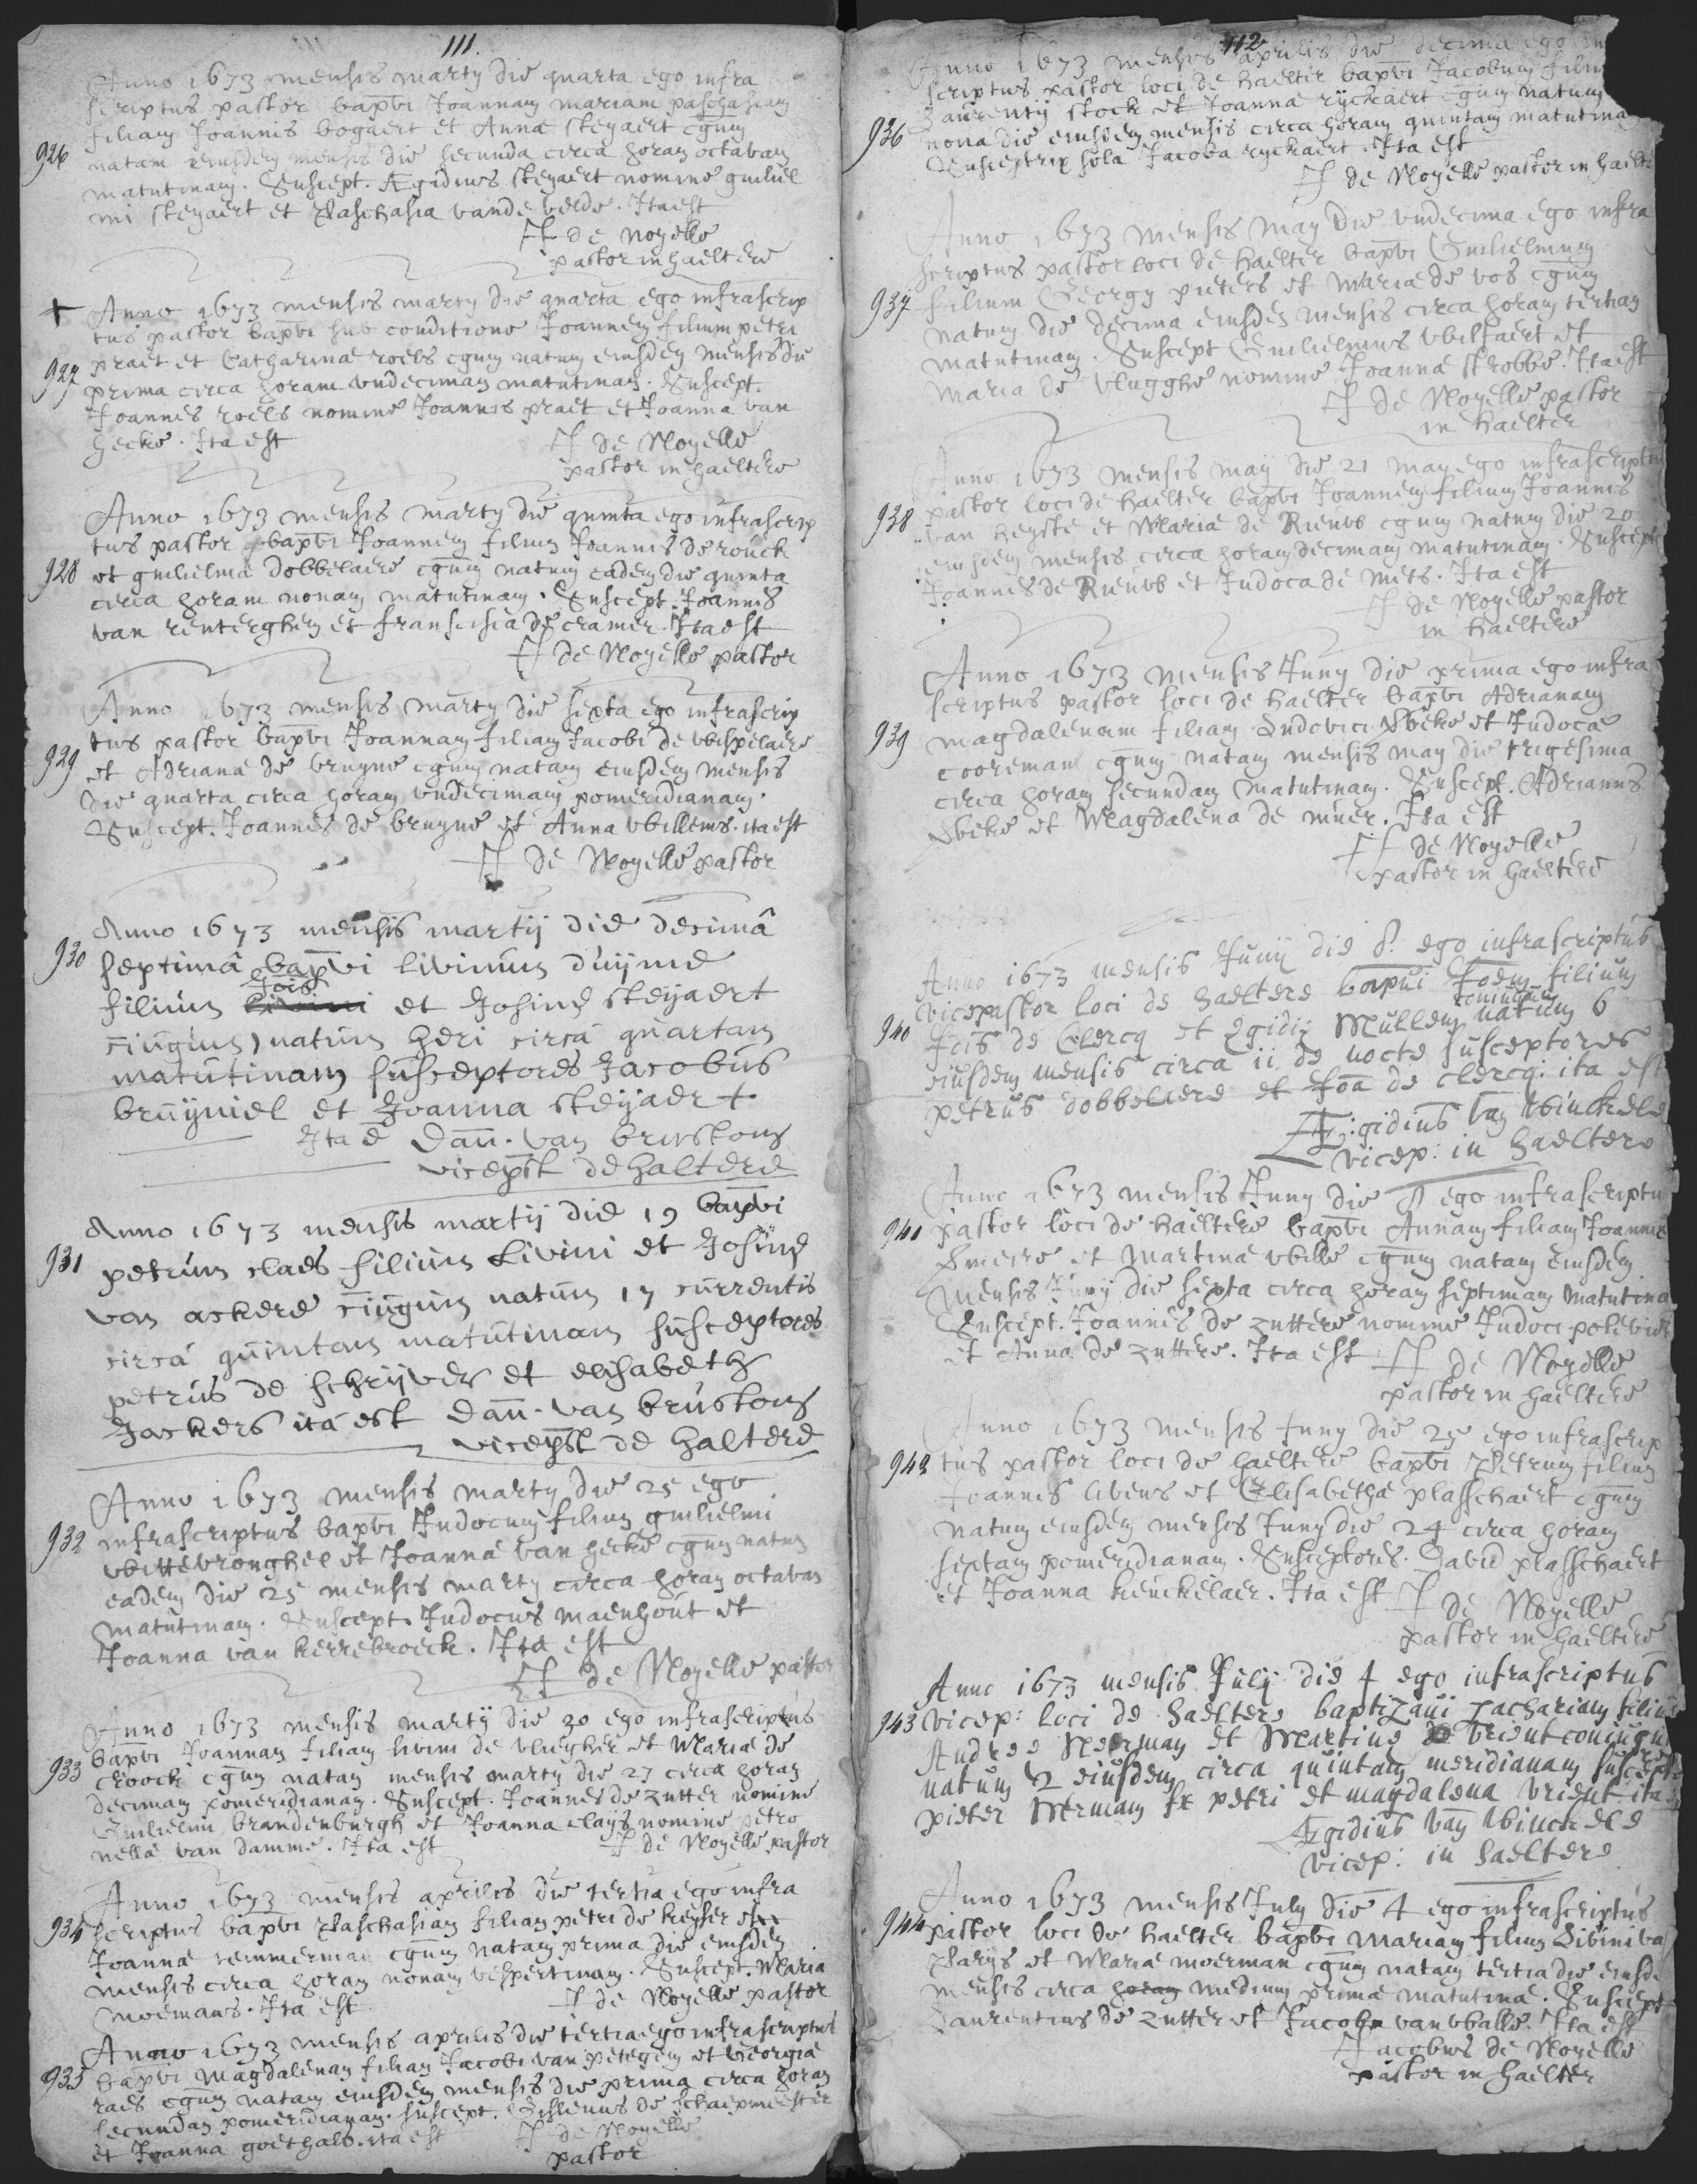 111.
Anno 1673 mensis marty die quarta ego infra
scriptus pastor bapvi Joannam mariam paschasiam
filiam Joannis bogaert et Annae steyaert cgum
926 natam eiusdem mensis die secunda circa horam octavam
matutinam. Suscept. Ægidius steyaert nomine guiliel
mi steyaert et Paschasia vande velde. Ita est
J de Noyelle
pastor in haeltere
+ Anno 1673 mensis marty die quarta ego infrascrip
tus pastor bapvi sub conditione Joannem filium petri
927 praet et Catharinae roels cgum natum eiusdem mensis die
prima circa horam undecimam matutinam. Suscept.
Joannes roels nomine Joannis praet et Joanna van
hecke. Ita est
J de Noyelle
pastor in haeltere
Anno 1673 mensis marty die quinta ego infrascrip
tus pastor bapvi Joannem filium Joannis de rouck
928 et guilielma dobbelaere cgum natum eadem die quinta
circa horam nonam matutinam. Suscept. Joannes
van renterghem et fransisca de cramer. Ita est
J de Noyelle pastor
Anno 1673 mensis marty die sexta ego infrascrip
tus pastor bapvi Joannam filiam Jacobi de wispelaere
929 et Adriana de bruyne cgum natam eiusdem mensis
die quarta circa horam undecimam pomeridianam.
Suscept. Joannes de bruyne et Anna willems. ita est
J de Noyelle pastor
Anno 1673 mensis martij die decimâ
930 septimâ bapvi livinum duijme
filium Jois et Josinae steyaert
ciugum natum heri circa quartam
matutinam susceptores Jacobus
bruyneel et Joanna steyaert
Ita e Dan. van brustom
vicepst de halterre
Anno 1673 mensis martij die 19 bapvi
931 petrum claes filium Livini et Josijne
van ackere ciugum natum 17 currentis
circa quintam matutinam susceptores
petrus de schrijver et elisabeth
Jackers ita est Dan. van brustom
vicepst de halterre
Anno 1673 mensis marty die 25 ego
932 infrascriptus bapvi Judocum filium guilielmi
wittevronghel et Joanna van hecke cgum natum
eadem die 25 mensis marty circa horam octavam
matutinam. Suscept. Judocus maenhout et
Joanna van kerrebroeck. Ita est
J de Noyelle pastor
Anno 1673 mensis martij die 30 ego infrascriptus
933 bapvi Joannam filiam livini de vliegher et Maria de
croock cgum natam mensis marty die 27 circa horam
decimam pomeridianam. Suscept. Joannes de zutter nomine
Guilielmi brandenburgh et Joanna clays nomine petro
nella van damme. Ita est
J de Noyelle pastor
Anno 1673 mensis aprilis die tertia ego infra
934 scriptus bapvi Paschasiam filiam petri de keyser et
Joanna temmerman cgum natam prima die eiusdem
mensis circa horam nonam vespertinam. Suscept. Maria
moemans. Ita est
J de Noyelle pastor
Anno 1673 mensis aprilis die tertia ego infrascriptus
935 bapvi Magdalenam filiam Jacobi van peteghem et Georgia
raes cgum natam eiusdem mensis die prima circa horam
secundam pomeridianam. suscept. Gislenus de schaepmeester
et Joanna goethals. ita est
J de Noyelle
pastor
112
Anno 1673 mensis aprilis die decima ego in
scriptus pastor loci de haelter bapvi Jacobum filium
Laurentij stock et Joanna ryckaert cgum natum
936 nona die eiusdem mensis circa horam quintam matutina
Susceptrix sola Jacoba ryckaert. Ita est
J de Noyelle pastor in haelte
Anno 1673 mensis may die undecima ego infra
scriptus pastor loci de haelter bapvi Guilielmum
937 filium Georgy pieters et Maria de vos cgum
natum die decima eiusdem mensis circa horam tertiam
matutinam. Suscept Guilielmus wilfaert et
maria de vlugghe nomine Joanna strobbe. Ita est
J de Noyelle pastor
in haelter
Anno 1673 mensis maij die 21 may ego infrascriptus
pastor loci de haelter bapvi Joannem filium Joannis
938 van heyste et Maria de Rieuw cgum natum die 20
eiusdem mensis circa horam decimam matutinam. Suscept
Joannes de Rieuw et Judoca de mets. Ita est
J de Noyelle pastor
in haeltere
Anno 1673 mensis Juny die prima ego infra
scriptus pastor loci de haelter bapvi Adrianam
939 magdalenam filiam Ludovici Sbeke et Judoca
cooreman cgum natam mensis may die trigesima
circa horam secundam matutinam. Suscept. Adrianus
Sbeke et Magdalena de muer. Ita est
J de Noyelle
pastor in haeltere
Anno 1673 mensis Junij die 8. ego infrascriptus
vicepastor loci de haeltere bapui Joem filium
940 Jois de Clercq et Egidij Mullem coniugum natum 6
eiusdem mensis circa 11 de nocte susceptores
petrus dobbelaere et Joa de clercq. ita est
Ægidius van Winckele
vicep: in haeltere
Anno 1673 mensis Juny die 8 ego infrascriptu
941 pastor loci de haeltere bapvi Annam filiam Joannis
Smeire et Martina wille cgum natam eiusdem
mensis Juny die sexta circa horam septimam matutina
Suscept. Joannes de zuttere nomine Judoci potevin
et Anna de zuttere. Ita est J de Noyelle
pastor in haeltere
Anno 1673 mensis Juny die 25 ego infrascrip
942 tus pastor loci de haeltere bapvi Petrum filium
Joannis livens et Elisabetha plasschaert cgum
natum eiusdem mensis Juny die 24 circa horam
septam pomeridianam. Susceptores. David plasschaert
et Joanna keuckelaer. Ita est J de Noyelle
pastor in haeltere
Anno 1673 mensis Julij die 4 ego infrascriptus
943 vicep: loci de haeltere baptizaui zachariam filium
Andree Neerman et Martine de vrient coniugu
natum 2 eiusdem circa quintam meridianam suscept
pieter Merman fs petri et magdalena vrient ita
Ægidius van Winckele
vicep: in haeltere
Anno 1673 mensis July die 4 ego infrascriptus
944 pastor loci de haelter bapvi mariam filiam Livini va
Parijs et Maria moerman cgum natam tertia die eiusd
mensis circa horam medium prima matutina. Suscept
Laurentius de zutter et Jacoba van walle. Ita est
Jacobus de Noyelle
pastor in haelter